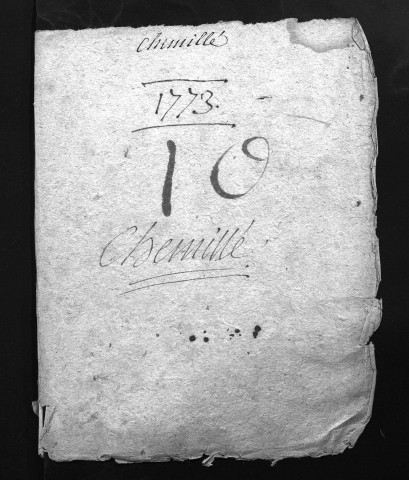 Chemillé
1773.
10
Chemillé